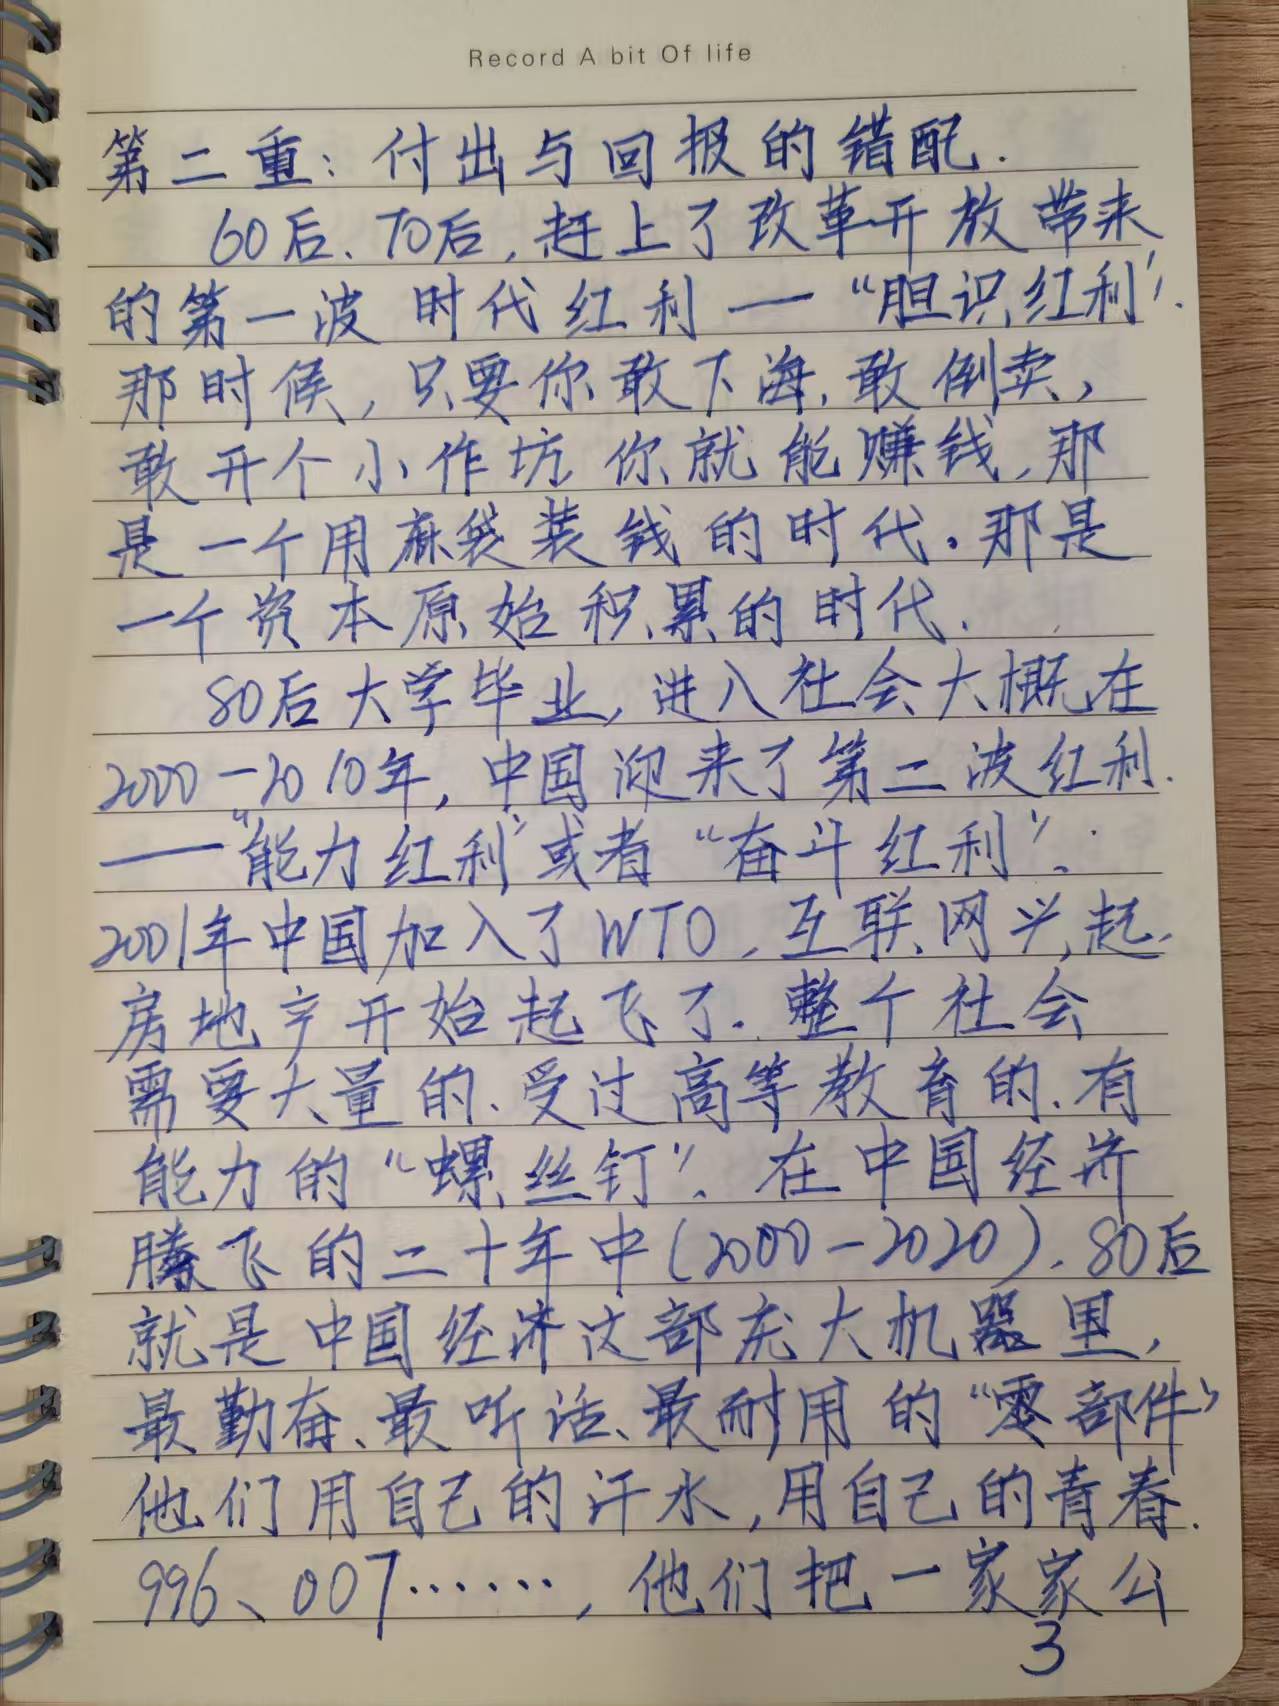 Record A bit Of life
第二重：付出与回报的错配.
60后、70后，赶上了改革开放带来
的第一波时代红利—“胆识红利”.
那时候，只要你敢下海，敢倒卖，
敢开个小作坊 你就能赚钱，那
是一个用麻袋装钱的时代。那是
一个资本原始积累的时代.
80后大学毕业，进入社会大概在
2000-2010年，中国迎来了第二波红利.
——“能力红利”或者“奋斗红利”.
2001年中国加入了WTO，互联网兴起，
房地产开始起飞了.整个社会
需要大量的、受过高等教育的、有
能力的“螺丝钉”.在中国经济
腾飞的二十年中(2000-2020)、80后
就是中国经济这部庞大机器里，
最勤奋、最听话、最耐用的“零部件”
他们用自己的汗水，用自己的青春.
996、007……，他们把一家家公
3